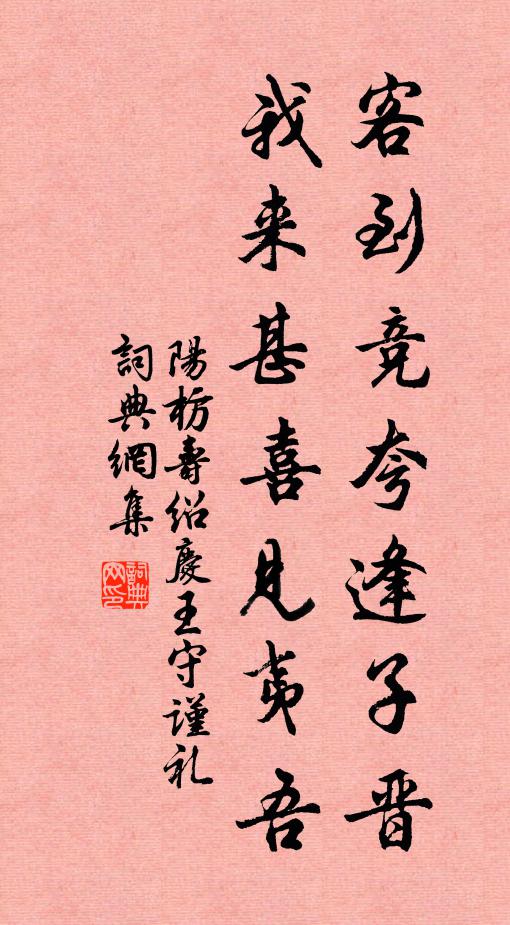 客到竞夸逢子晋
我来甚喜见夷吾
陽枋壽绍慶王守谨礼
詞典網集
詞典网印